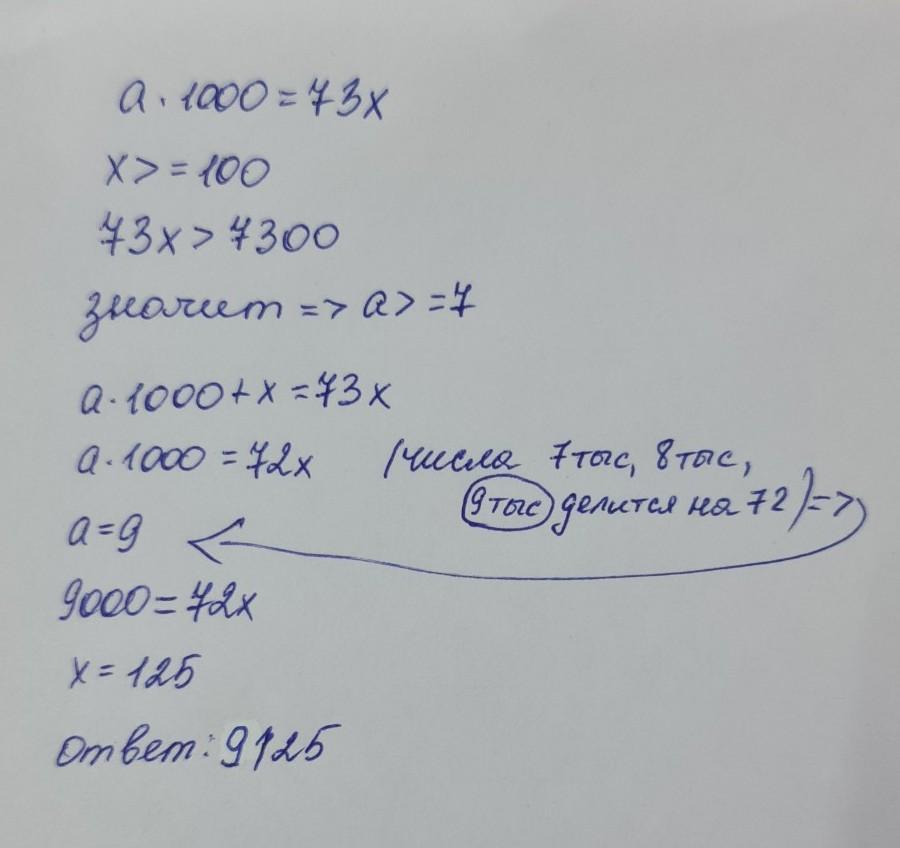 a · 1000 = 73x
x > = 100
73x > 7300
значит => a > = 7
a · 1000 + x = 73x
a · 1000 = 72x (числа 7тыс, 8тыс,
9тыс делится на 72) =>
a = 9
9000 = 72x
x = 125
ответ: 9125